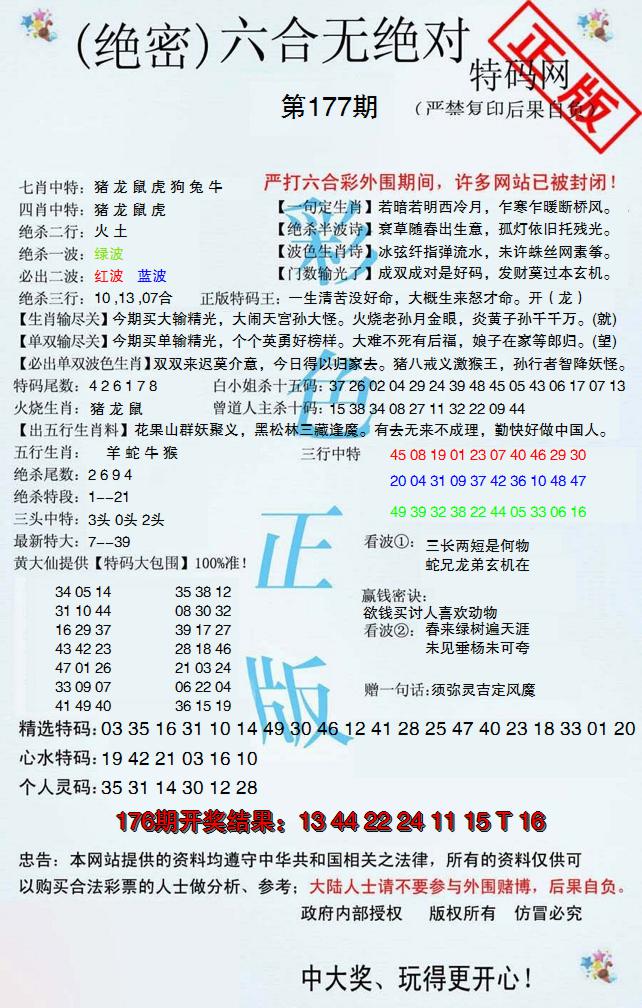 (绝密)六合无绝对
特码网
正版
第177期
(严禁复印后果自负)
七肖中特：猪龙鼠虎狗兔牛
严打六合彩外围期间，许多网站已被封闭！
四肖中特：猪龙鼠虎
【一句定生肖】若暗若明西冷月，乍寒乍暖断桥风。
绝杀二行：火土
【绝杀半波诗】裒草随春出生意，孤灯依旧托残光。
绝杀一波：绿波
【波色生肖诗】冰弦纤指弹流水，朱许蛛丝网素筝。
必出二波：红波 蓝波
【门数输光了】成双成对是好码，发财莫过本玄机。
绝杀三行：10 ,13 ,07合
正版特码王：一生清苦没好命，大概生来怒才命。开（龙）
【生肖输尽关】今期买大输精光，大闹天宫孙大怪。火烧老孙月金眼，炎黄子孙千千万。(就)
【单双输尽关】今期买单输精光，个个英勇好榜样。大难不死有后福，娘子在家等郎归。(望)
【必出单双波色生肖】双双来迟莫介意，今日得以归家去。猪八戒义激猴王，孙行者智降妖怪。
特码尾数：4 2 6 1 7 8
白小姐杀十五码：37 26 02 04 29 24 39 48 45 05 43 06 17 07 13
火烧生肖：猪龙鼠
曾道人主杀十码：15 38 34 08 27 11 32 22 09 44
【出五行生肖料】花果山群妖聚义，黑松林三藏逢魔。有去无来不成理，勤快好做中国人。
五行生肖：羊蛇牛猴
三行中特
45 08 19 01 23 07 40 46 29 30
20 04 31 09 37 42 36 10 48 47
49 39 32 38 22 44 05 33 06 16
绝杀尾数：2 6 9 4
绝杀特段：1--21
三头中特：3头 0头 2头
最新特大：7--39
黄大仙提供【特码大包围】100%准！
34 05 14 35 38 12
31 10 44 08 30 32
16 29 37 39 17 27
43 42 23 28 18 46
47 01 26 21 03 24
33 09 07 06 22 04
41 49 40 36 15 19
看波①：三长两短是何物
蛇兄龙弟玄机在
赢钱密诀：
欲钱买讨人喜欢动物
看波②：春来绿树遍天涯
朱见垂杨朱可夸
赠一句话：须弥灵吉定风魔
彩色正版
精选特码：03 35 16 31 10 14 49 30 46 12 41 28 25 47 40 23 18 33 01 20
心水特码：19 42 21 03 16 10
个人灵码：35 31 14 30 12 28
176期开奖结果：13 44 22 24 11 15 T 16
忠告：本网站提供的资料均遵守中华共和国相关之法律，所有的资料仅供可
以购买合法彩票的人士做分析、参考；大陆人士请不要参与外围赌博，后果自负。
政府内部授权 版权所有 仿冒必究
中大奖、玩得更开心！